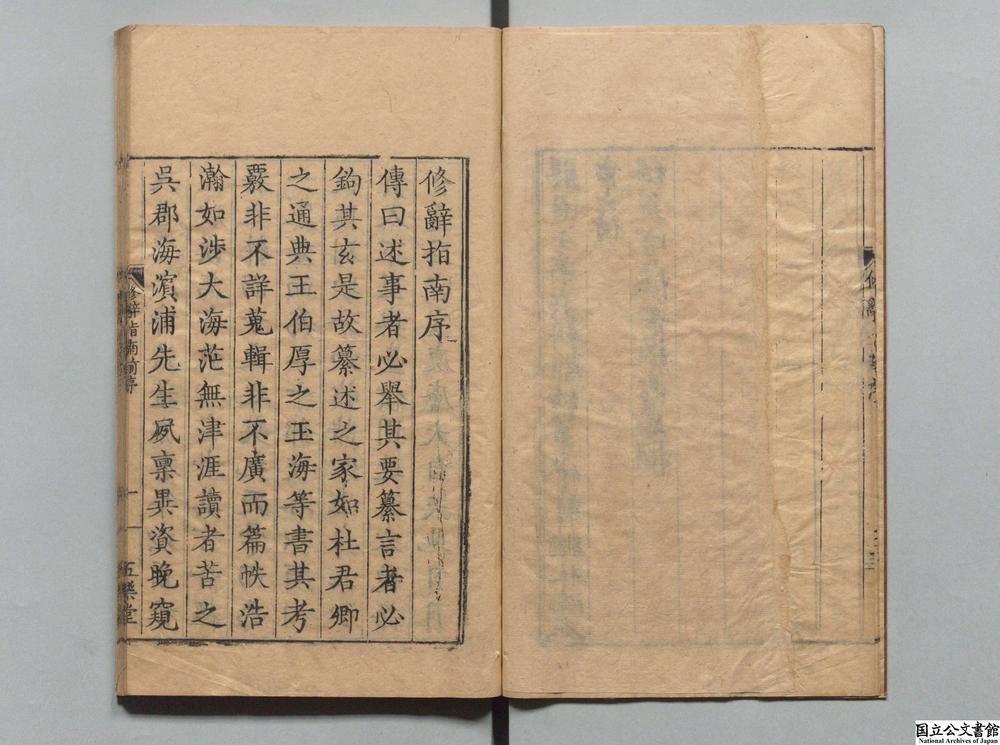 修辭指南序
傳曰述事者必舉其要纂言者必
鉤其玄是故纂述之家如杜君卿
之通典王伯厚之玉海等書其考
覈非不詳蒐輯非不廣而篇帙浩
瀚如涉大海茫無津涯讀者苦之
吳郡海濱浦先生夙稟異資晚窺
修辭指南前序
一
五樂堂
国立公文書館
National Archives of Japan